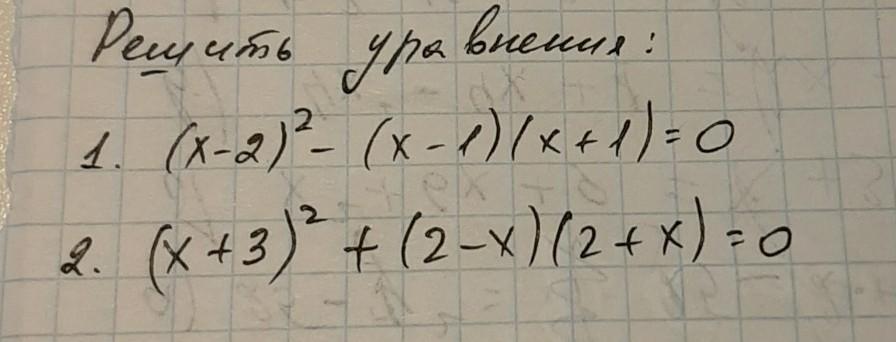 Решить уравнения:
1. (x-2)² - (x-1)(x+1)=0
2. (x+3)² + (2-x)(2+x)=0